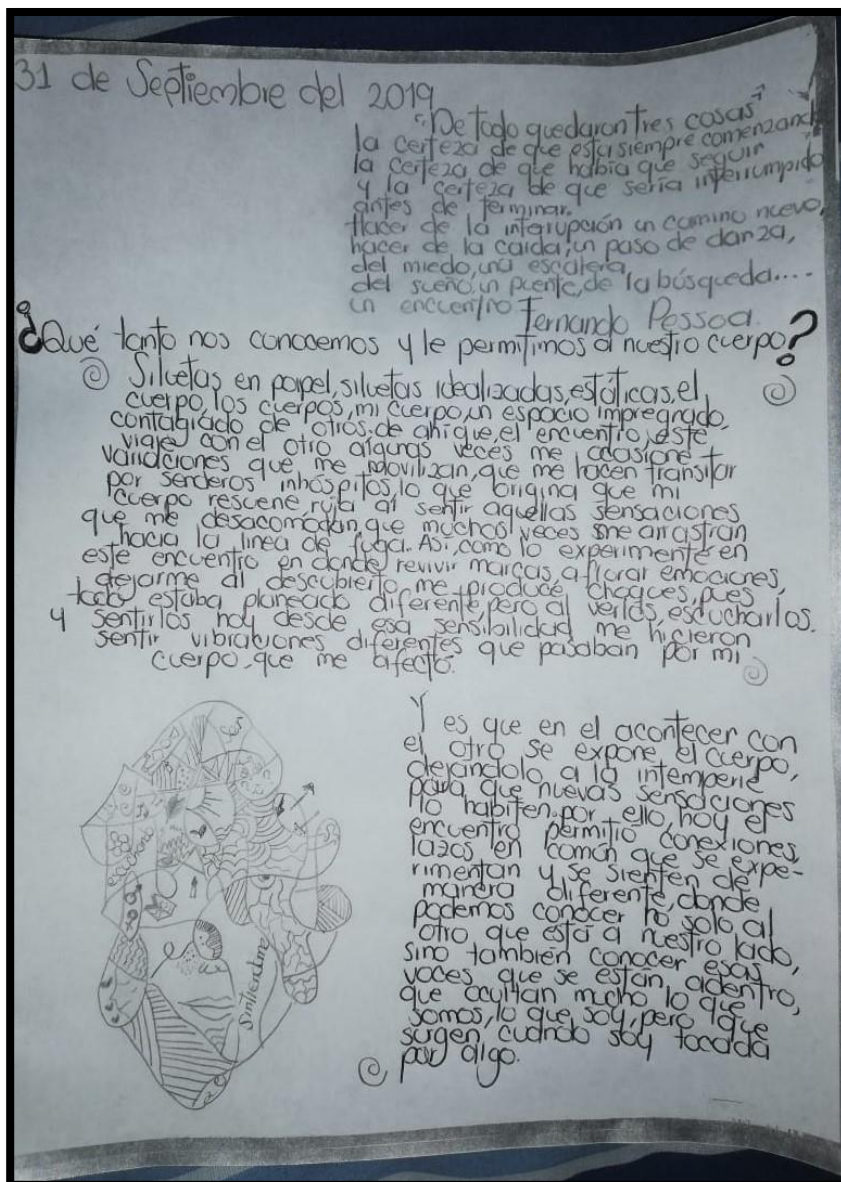 31 de Septiembre del 2019
"De todo quedaron tres cosas"
la certeza de que esta siempre comenzando
la certeza de que había que seguir
y la certeza de que sería interrumpido
antes de terminar.
Hacer de la interupción un camino nuevo,
hacer de la caida, un paso de danza,
del miedo, una escalera,
del sueño, un puente, de la búsqueda....
un encuentro Fernando Pessoa.
¿Qué tanto nos conocemos y le permitimos a nuestro cuerpo?
Siluetas en papel, siluetas idealizadas, estáticas, el
cuerpo, los cuerpos, mi cuerpo, un espacio impregnado,
contagiado de otros. de ahí que, el encuentro, este
viaje con el otro algunas veces me ocasione
variaciones que me movilizan, que me hacen transitar
por senderos inhóspitos, lo que origina que mi
cuerpo resuene ruja al sentir aquellas sensaciones
que me desacomodan, que muchas veces me arrastran
hacia la linea de fuga. Así, como lo experimente en
este encuentro en donde revivir marcas, aflorar emociones,
dejarme al descubierto, me produce choques, pues
todo estaba planeado diferente, pero al verlos, escucharlos.
y sentirlos hoy desde esa sensibilidad me hicieron
sentir vibraciones diferentes que pasaban por mi
cuerpo, que me afectó.
Y es que en el acontecer con
el otro se expone el cuerpo,
dejandolo a la intemperie
para que nuevas sensaciones
lo habiten. por ello, hoy el
encuentro permitió conexiones,
lazos en común que se expe-
rimentan y se sienten de
manera diferente, donde
podemos conocer no solo al
otro que está a nuestro lado,
sino también conocer esas
voces que se están adentro,
que ocultan mucho lo que
somos, lo que soy, pero que
surgen cuando soy tocada
por algo.